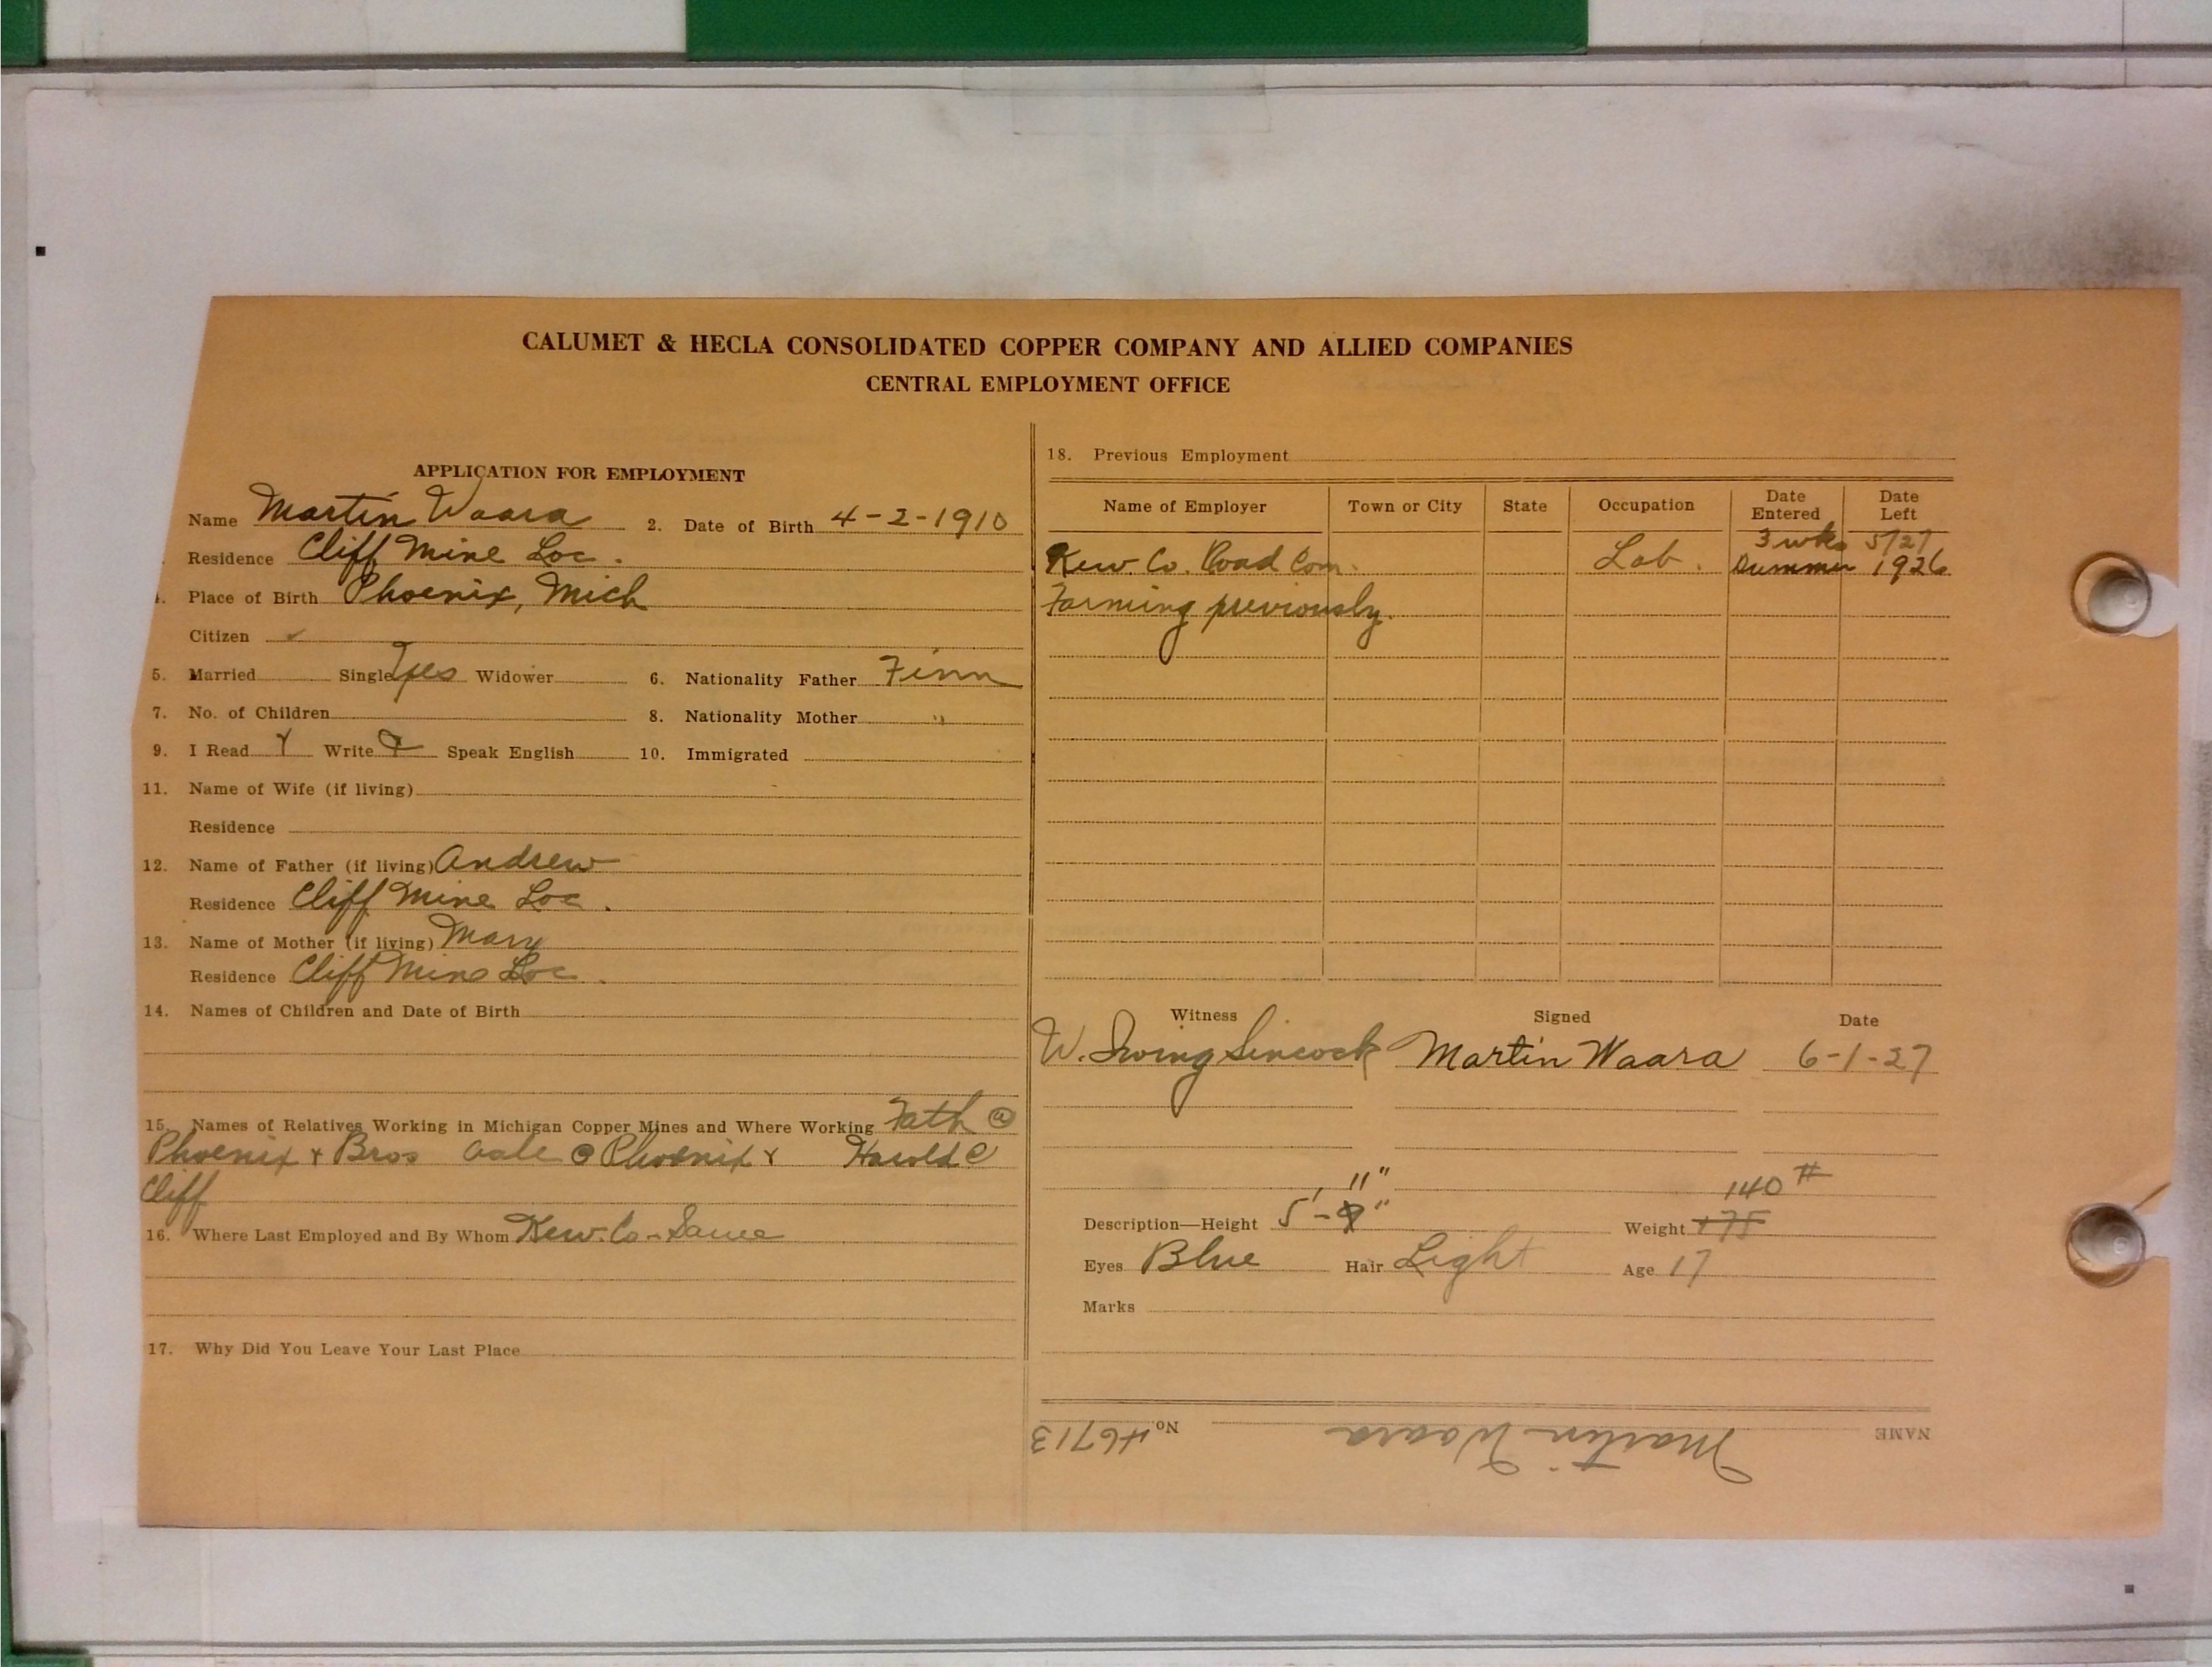 CALUMET & HECLA CONSOLIDATED COPPER COMPANY AND ALLIED COMPANIES
CENTRAL EMPLOYMENT OFFICE
APPLICATION FOR EMPLOYMENT
Name Martin Waara 2. Date of Birth 4-2-1910
Residence Cliff Mine Loc.
Place of Birth Phoenix, Mich
Citizen ✓
5. Married Single Yes Widower 6. Nationality Father Finn
7. No. of Children 8. Nationality Mother "
9. I Read Y Write Y Speak English 10. Immigrated
11. Name of Wife (if living)
Residence
12. Name of Father (if living) Andrew
Residence Cliff Mine Loc.
13. Name of Mother (if living) Mary
Residence Cliff Mine Loc.
14. Names of Children and Date of Birth
15. Names of Relatives Working in Michigan Copper Mines and Where Working Fath @
Phoenix + Bros @ Phoenix + Harold @
Cliff
16. Where Last Employed and By Whom Kew. Co - Same
17. Why Did You Leave Your Last Place
18. Previous Employment
Name of Employer Town or City State Occupation Date Entered Date Left
3 wks 5/27
Kew. Co. Road Com. Lab. Summer 1926
Farming previously.
Witness Signed Date
W. Irving Sincock Martin Waara 6-1-27
11" 140 #
Description—Height 5'-9" Weight 175
Eyes Blue Hair Light Age 17
Marks
NAME Martin Waara No. 46713